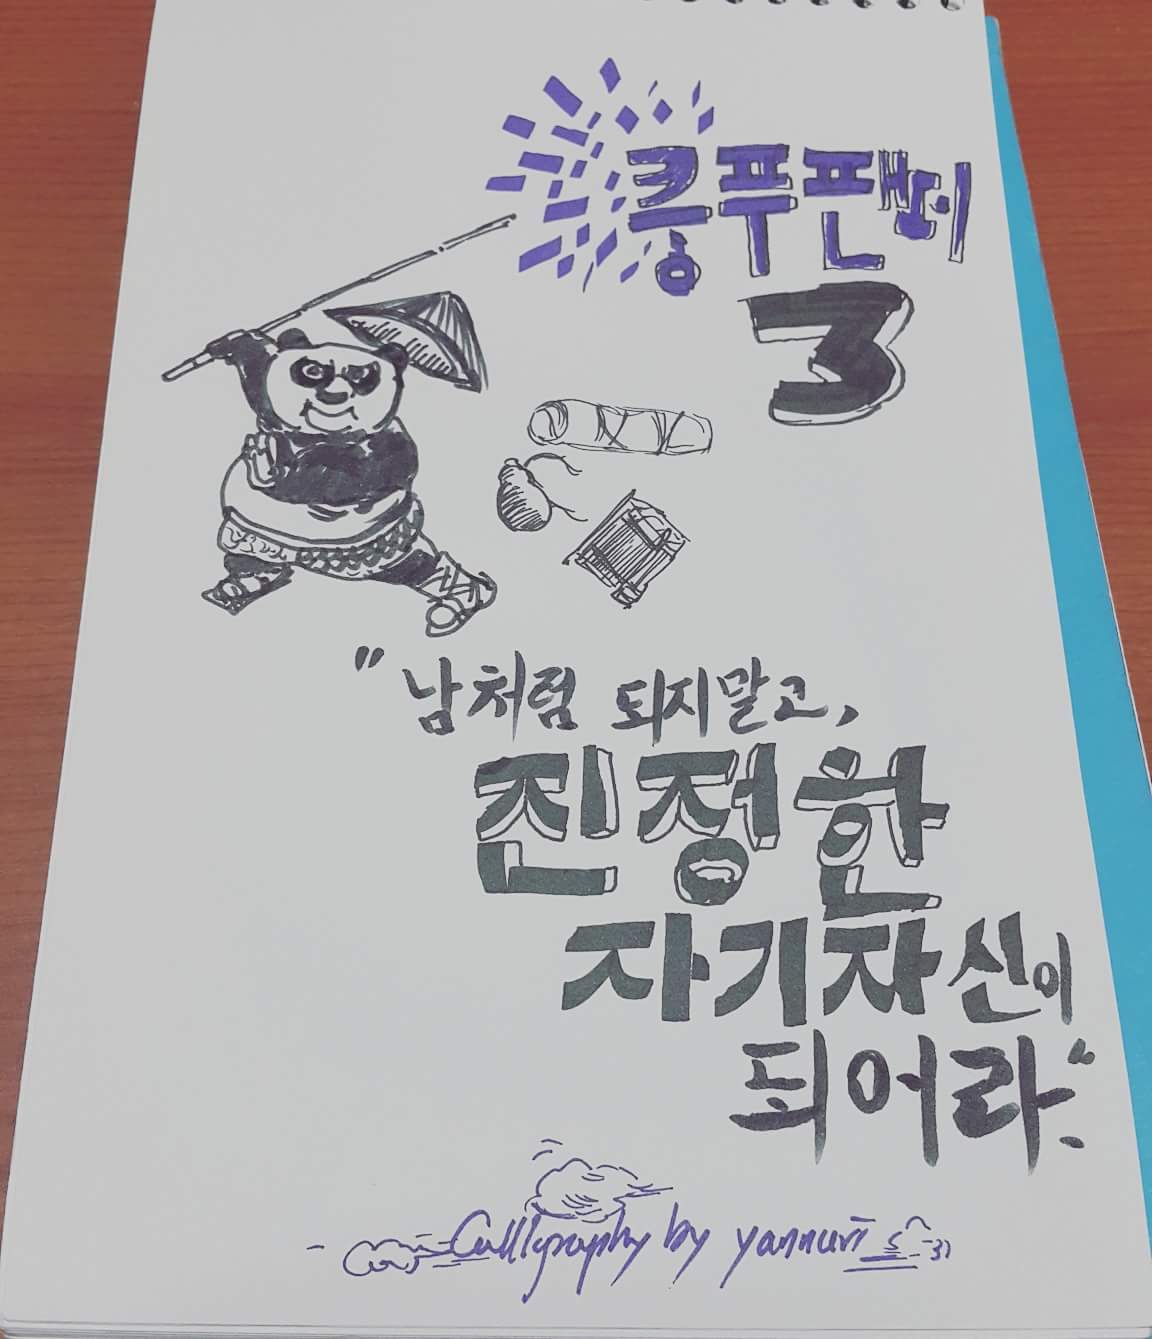 쿵푸팬더
3
"남처럼 되지말고,
진정한
자기자신이
되어라."
Calligraphy by yannuri